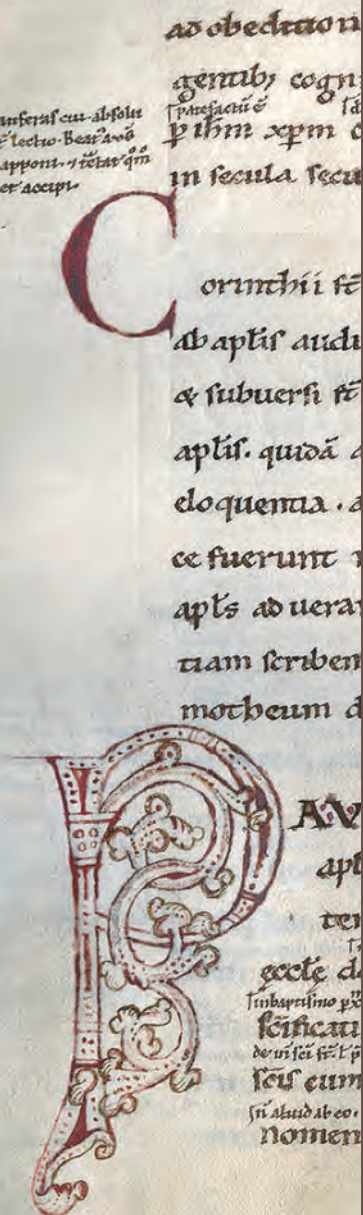 ad obedition
gentib; cogn
patefactū ē
p ihm xpm c
in secula secu
auferas cui absolu
lectio. Beat
apponi
et accipi
Corinthii st̄
ab apl̄is audi
& subuersi st̄
apl̄is. quidā a
eloquentia. a
ce fuerunt
apl̄s ad uera
tiam scriben
motheum d
PAV
apl
tei
eccl̄ę d
in baptismo
sc̄ificati
sc̄is cum
aliud ab eo.
nomen